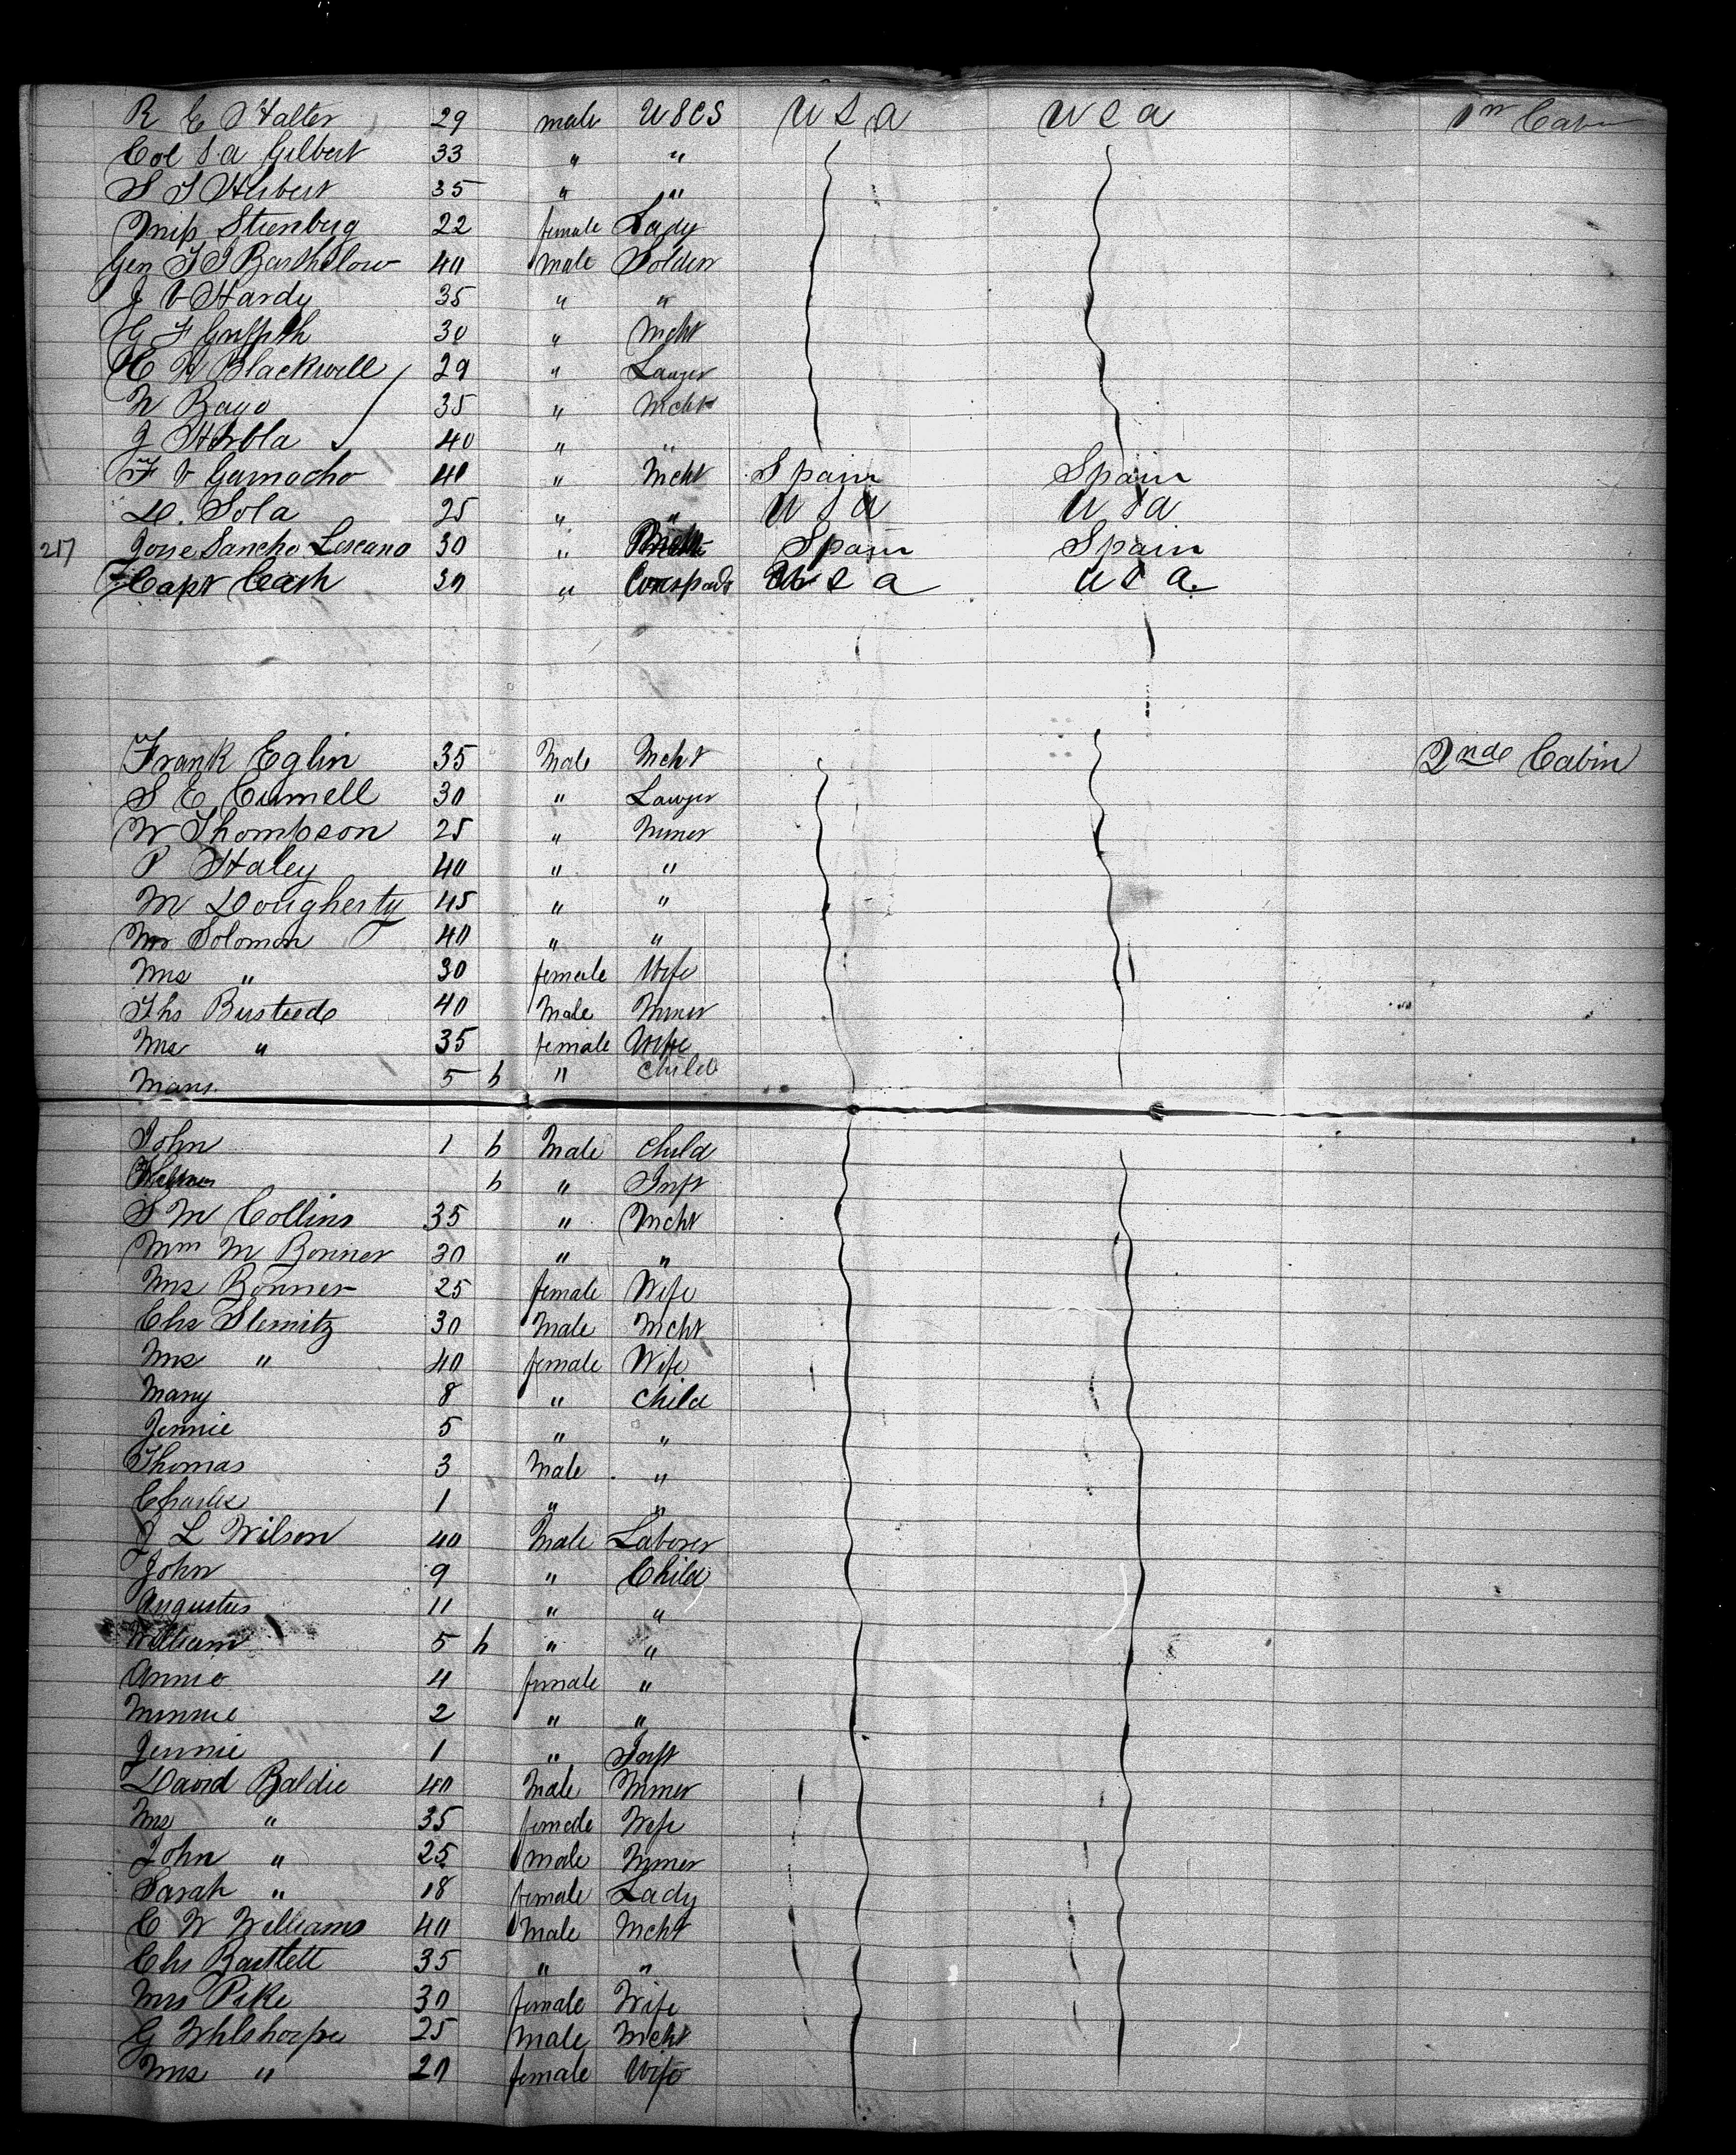 R E Halter 29 male USCS U S A U S A 1st Cabin
Col S. A Gilbert 33 " "
S T Hubert 35 " "
Miss Strenberg 22 female Lady
Gen J J Barthelow 40 male Solder
J V Hardy 35 " "
G F Griffith 30 " Mcht
W Blackwell 29 " Lawyer
N Bayo 35 " Mcht
J 40 " "
F V Gamacho 40 " Mcht Spain Spain
D. Sola 25 " " U S A U S A
217 Jose Sancho Lescano 30 " Spain Spain
Capt Cash 30 " U S A U S A
Frank Eglin 35 Male Mcht 2nde Cabin
S E Cumell 30 " Lawyer
W Thompson 25 " Miner
P Haley 40 " "
M Dougherty 45 " "
Mr Solomon 40 " "
Mrs " 30 female Wife
Ths Busteede 40 Male Miner
Mrs " 35 female Wife
Mary 5 h " Child
John 1 h Male Child
h " Inft
S M Collins 35 " Mcht
Wm M Bonner 30 " "
Mrs Bonner 25 female Wife
Chs Slemitz 30 Male Mcht
Mrs " 40 female Wife
Mary 8 " Child
Jennie 5 " "
Thomas 3 Male "
Charles 1 " "
J L Wilson 40 Male Laborer
John 9 " Child
Augustus 11 " "
William 5 h " "
Annie 4 female "
Minnie 2 " "
Jennie 1 " Inft
David Baldie 40 Male Miner
Mrs " 35 female Wife
John " 25 male Miner
Sarah " 18 female Lady
C W Williams 40 Male Mcht
Chs Bartlett 35 " "
Mrs Pike 30 female Wife
G Whlshorpe 25 male Mcht
Mrs " 20 female Wife